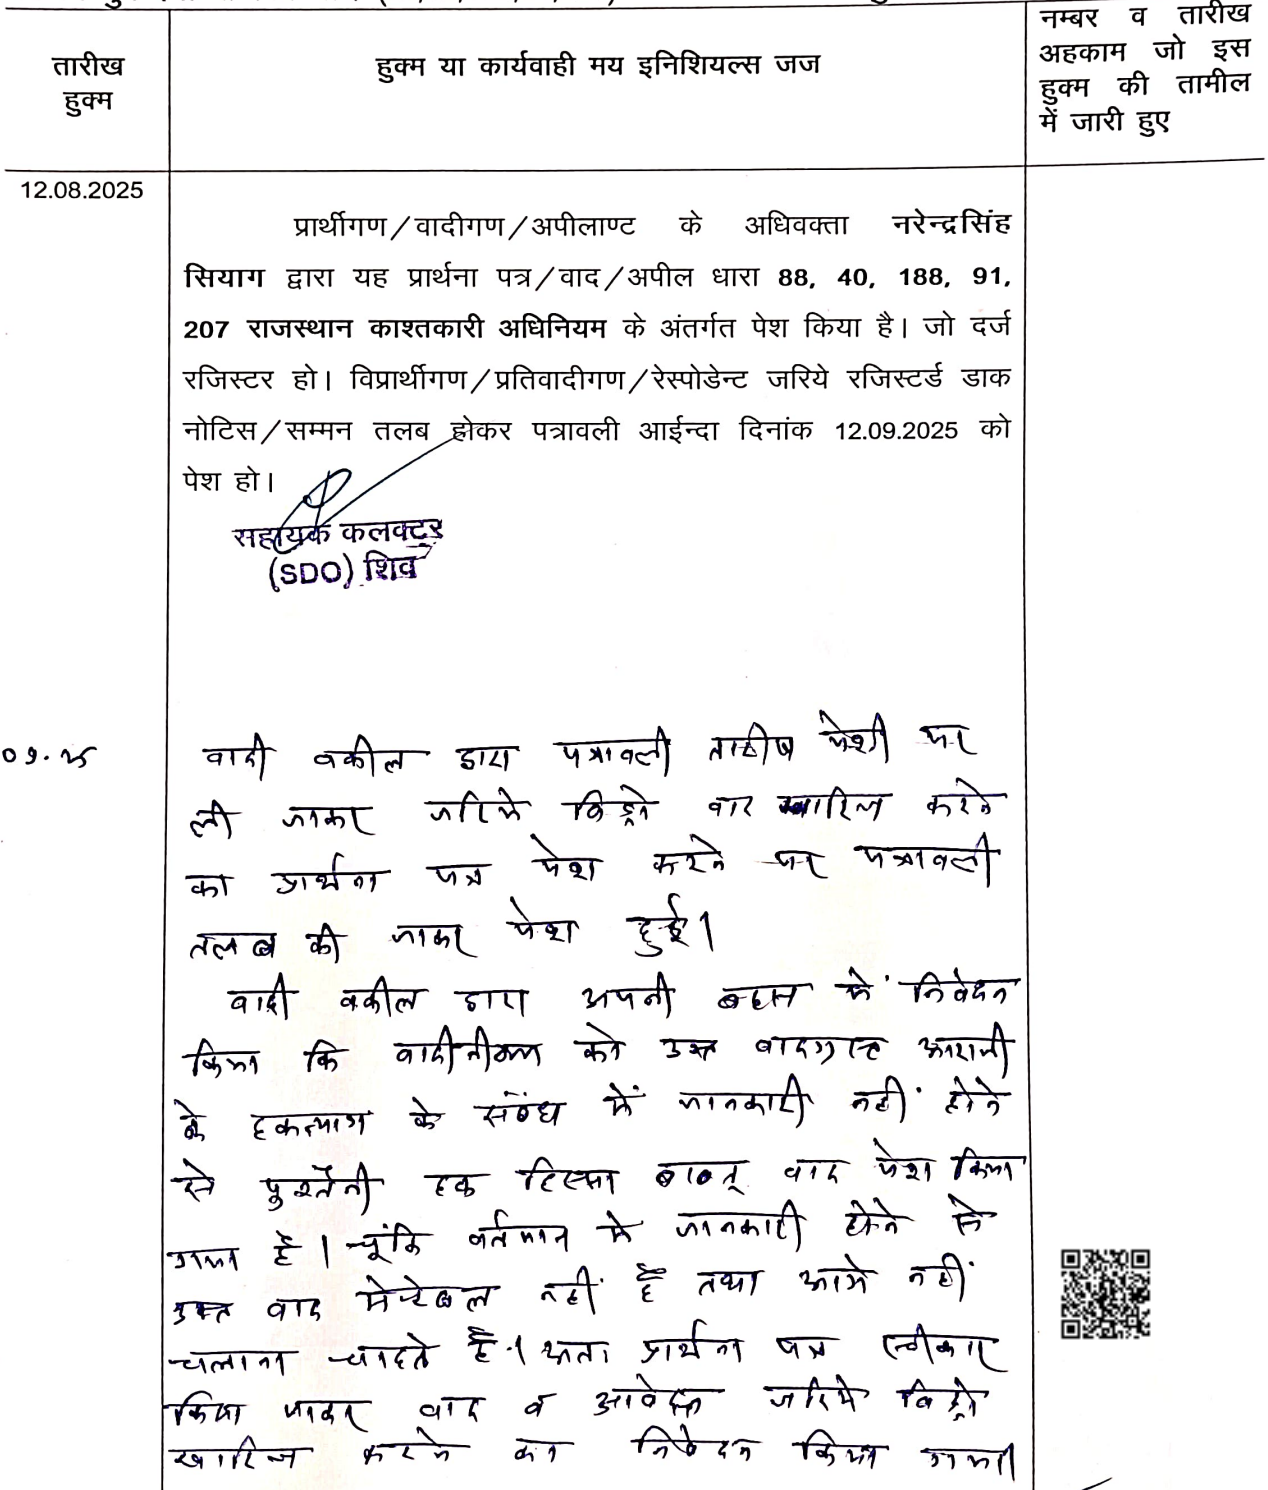 तारीख
हुक्म
हुक्म या कार्यवाही मय इनिशियल्स जज
नम्बर व तारीख
अहकाम जो इस
हुक्म की तामील
में जारी हुए
12.08.2025
प्रार्थीगण/वादीगण/अपीलाण्ट के अधिवक्ता नरेन्द्रसिंह
सियाग द्वारा यह प्रार्थना पत्र/वाद/अपील धारा 88, 40, 188, 91,
207 राजस्थान काश्तकारी अधिनियम के अंतर्गत पेश किया है। जो दर्ज
रजिस्टर हो। विप्रार्थीगण/प्रतिवादीगण/रेस्पोडेन्ट जरिये रजिस्टर्ड डाक
नोटिस/सम्मन तलब होकर पत्रावली आईन्दा दिनांक 12.09.2025 को
पेश हो।
सहायक कलक्टर
(SDO) शिव
09.25
वादी वकील द्वारा पत्रावली तारीख पेशी पर
ली जाकर जरिये विड्रो वाद खारिज करने
का प्रार्थना पत्र पेश करने पर पत्रावली
तलब की जाकर पेश हुई।
वादी वकील द्वारा अपनी बहस में निवेदन
किया कि को उक्त वादग्रस्त आराजी
के हकत्याग के संबंध में जानकारी नहीं होने
से पुश्तैनी हक हिस्सा बाबत् वाद पेश किया
गया है। चूंकि वर्तमान में जानकारी होने से
उक्त वाद मेंटेबल नहीं है तथा आगे नहीं
चलाना चाहते है। अतः प्रार्थना पत्र स्वीकार
किया जाकर वाद व जरिये विड्रो
खारिज करने का निवेदन किया गया।